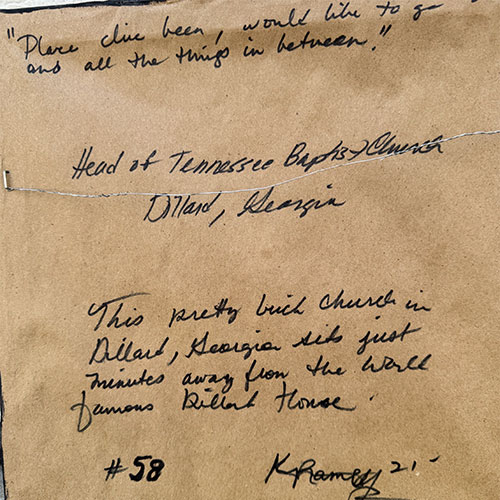 "Place I've been, would like to go
and all the things in between."
Head of Tennessee Baptist Church
Dillard, Georgia
This pretty brick church in
Dillard, Georgia sits just
minutes away from the world
famous Dillard House.
#58
K Ramey 21-